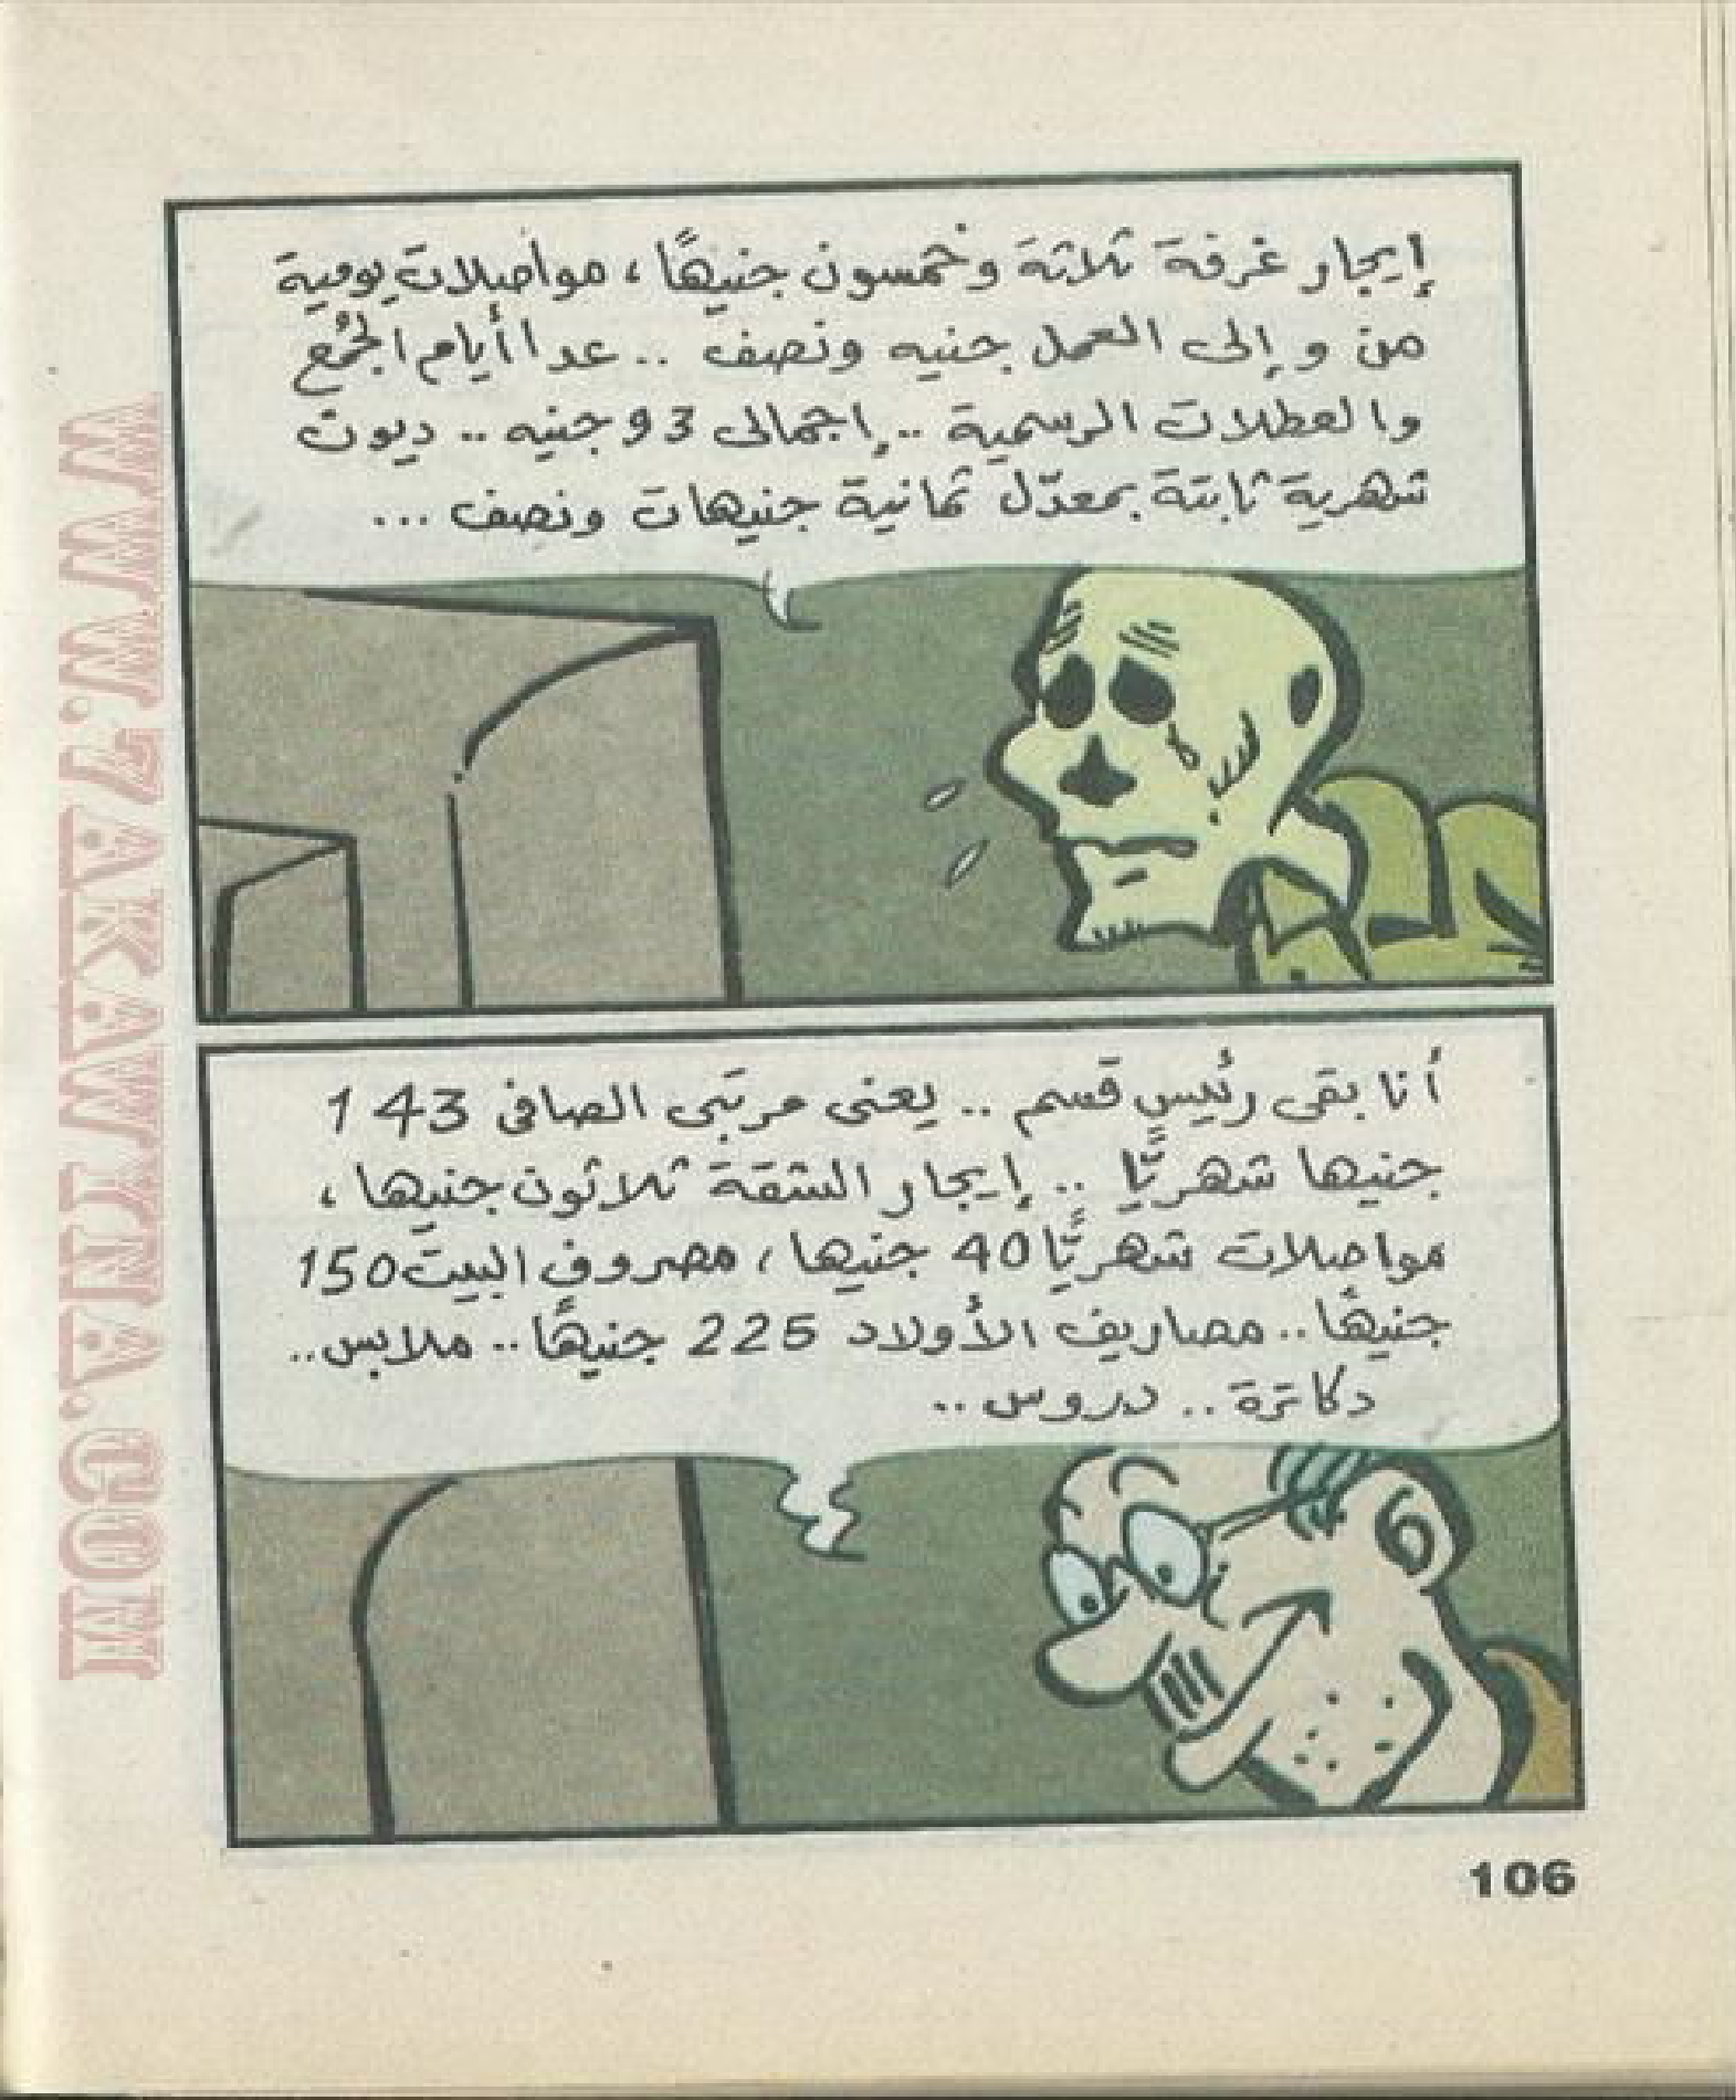 إيجار غرفة ثلاثة وخمسون جنيهًا، مواصلات يومية
من وإلى العمل جنيه ونصف .. عدا أيام الجُمع
والعطلات الرسمية .. إجمالى 93 جنيه .. ديون
شهرية ثابتة بمعدّل ثمانية جنيهات ونصف ...
أنا بقى رئيس قسم .. يعنى مرتبى الصافى 143
جنيها شهريًّا .. إيجار الشقة ثلاثون جنيها،
مواصلات شهريًّا 40 جنيها، مصروف البيت 150
جنيهًا .. مصاريف الأولاد 225 جنيهًا .. ملابس ..
دكاترة .. دروس ..
106
WWW.7AKAWITNA.COM